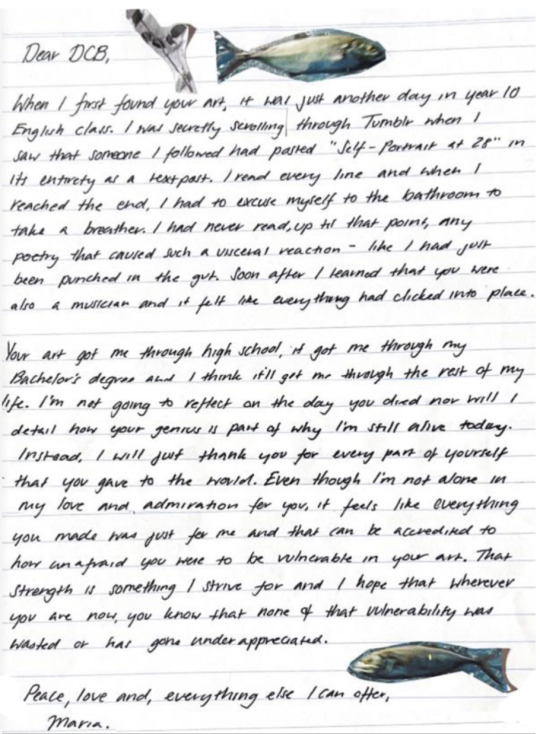 Dear DCB,
When I first found your art, it was just another day in year 10
English class. I was secretly scrolling through Tumblr when I
saw that someone I followed had posted "Self-Portrait at 28" in
its entirety as a textpost. I read every line and when I
reached the end, I had to excuse myself to the bathroom to
take a breather. I had never read, up til that point, any
poetry that caused such a visceral reaction - like I had just
been punched in the gut. Soon after I learned that you were
also a musician and it felt like everything had clicked into place.
Your art got me through high school, it got me through my
Bachelor's degree and I think it'll get me through the rest of my
life. I'm not going to reflect on the day you died nor will I
detail how your genius is part of why I'm still alive today.
Instead, I will just thank you for every part of yourself
that you gave to the world. Even though I'm not alone in
my love and admiration for you, it feels like everything
you made was just for me and that can be accredited to
how unafraid you were to be vulnerable in your art. That
strength is something I strive for and I hope that wherever
you are now, you know that none of that vulnerability was
wasted or has gone underappreciated.
Peace, love and, everything else I can offer,
Maria.